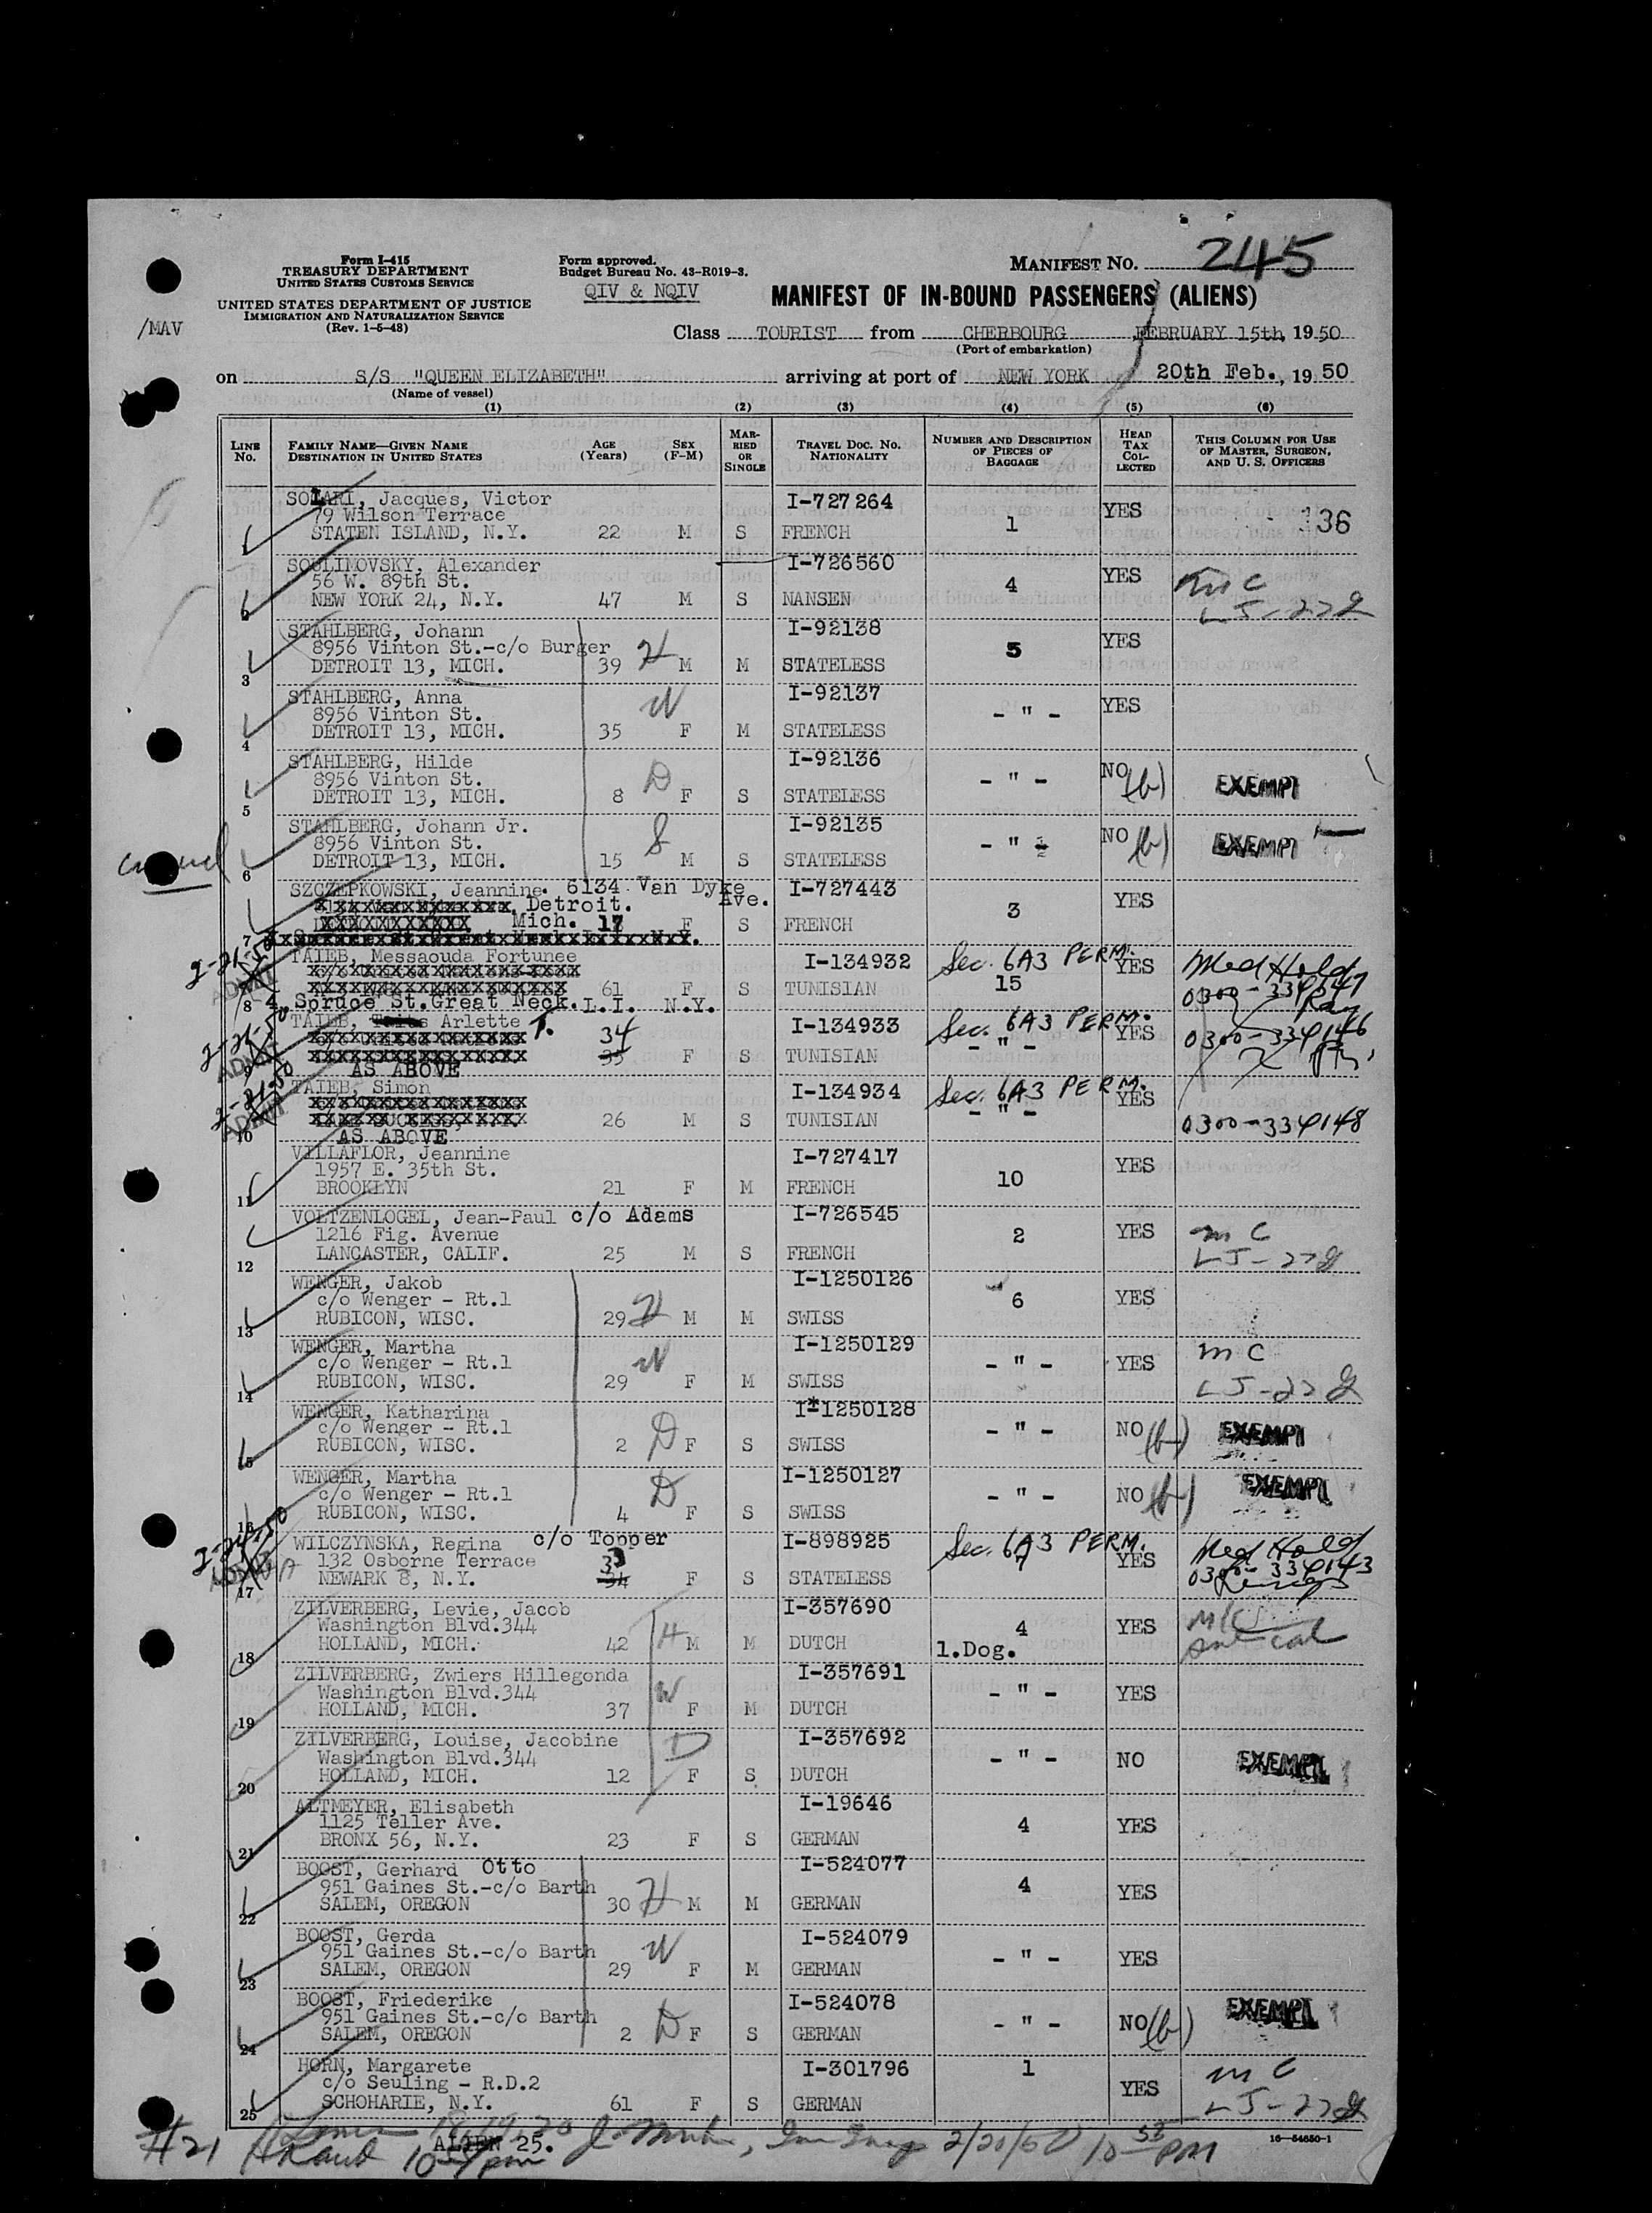 MANIFEST NO. 245
Form I-415
TREASURY DEPARTMENT
UNITED STATES CUSTOMS SERVICE
UNITED STATES DEPARTMENT OF JUSTICE
IMMIGRATION AND NATURALIZATION SERVICE
(Rev. 1-5-48)
Form approved.
Budget Bureau No. 43-R019-3.
QIV & NQIV
/MAV
MANIFEST OF IN-BOUND PASSENGERS (ALIENS)
Class TOURIST from CHERBOURG FEBRUARY 15th, 19 50
(Port of embarkation)
on S/S "QUEEN ELIZABETH" arriving at port of NEW YORK 20th Feb., 19 50
(Name of vessel)
(1) (2) (3) (4) (5) (6)
LINE No. FAMILY NAME—GIVEN NAME DESTINATION IN UNITED STATES AGE (Years) SEX (F-M) MARRIED OR SINGLE TRAVEL DOC. NO. NATIONALITY NUMBER AND DESCRIPTION OF PIECES OF BAGGAGE HEAD TAX COLLECTED THIS COLUMN FOR USE OF MASTER, SURGEON, AND U. S. OFFICERS
SOLARI, Jacques, Victor I-727264 YES
79 Wilson Terrace 1 136
STATEN ISLAND, N.Y. 22 M S FRENCH
SOULIMOVSKY, Alexander I-726560 YES
56 W. 89th St. 4 mc
2 NEW YORK 24, N.Y. 47 M S NANSEN
STAHLBERG, Johann I-92138 YES
8956 Vinton St.-c/o Burger H 5
3 DETROIT 13, MICH. 39 M M STATELESS
STAHLBERG, Anna I-92137 YES
8956 Vinton St. W - " -
4 DETROIT 13, MICH. 35 F M STATELESS
STAHLBERG, Hilde I-92136 NO (b)
8956 Vinton St. D - " - EXEMPT
5 DETROIT 13, MICH. 8 F S STATELESS
STAHLBERG, Johann Jr. I-92135 NO (b)
8956 Vinton St. S - " - EXEMPT
6 DETROIT 13, MICH. 15 M S STATELESS
SZCZEPKOWSKI, Jeannine. 6134 Van Dyke Ave. I-727443 YES
Detroit. 3
7 Mich. 17 F S FRENCH
2-21-50 TAIEB, Messaouda Fortunee I-134932 Sec. 6A3 PERM. YES Med Hold
ADMIT 61 F S TUNISIAN 15 0300-334147
8 4 Spruce St. Great Neck. L.I. N.Y.
2-21-50 TAIEB, Arlette T. 34 I-134933 Sec. 6A3 PERM. YES 0300-334146
ADMIT 35 F S TUNISIAN - " -
9 AS ABOVE
2-21-50 TAIEB, Simon I-134934 Sec. 6A3 PERM. YES
ADMIT 26 M S TUNISIAN - " - 0300-334148
10 AS ABOVE
VILLAFLOR, Jeannine I-727417 YES
1957 E. 35th St. 10
11 BROOKLYN 21 F M FRENCH
VOLTZENLOGEL, Jean-Paul c/o Adams I-726545 YES
1216 Fig. Avenue 2 mc
12 LANCASTER, CALIF. 25 M S FRENCH
WENGER, Jakob I-1250126 YES
c/o Wenger - Rt.1 H 6
13 RUBICON, WISC. 29 M M SWISS
WENGER, Martha I-1250129 YES mc
c/o Wenger - Rt.1 W - " -
14 RUBICON, WISC. 29 F M SWISS
WENGER, Katharina I-1250128 NO (b)
c/o Wenger - Rt.1 D - " - EXEMPT
15 RUBICON, WISC. 2 F S SWISS
WENGER, Martha I-1250127 NO (b)
c/o Wenger - Rt.1 D - " - EXEMPT
16 RUBICON, WISC. 4 F S SWISS
WILCZYNSKA, Regina c/o Topper I-898925 Sec. 6A3 PERM. YES Med Hold
132 Osborne Terrace 33 7 0300-334143
17 NEWARK 8, N.Y. 34 F S STATELESS
ZILVERBERG, Levie, Jacob I-357690 YES
Washington Blvd.344 H 4
18 HOLLAND, MICH. 42 M M DUTCH 1.Dog.
ZILVERBERG, Zwiers Hillegonda I-357691 YES
Washington Blvd.344 W - " -
19 HOLLAND, MICH. 37 F M DUTCH
ZILVERBERG, Louise, Jacobine I-357692 NO
Washington Blvd.344 D - " - EXEMPT
20 HOLLAND, MICH. 12 F S DUTCH
ALTMEYER, Elisabeth I-19646 YES
1125 Teller Ave. 4
21 BRONX 56, N.Y. 23 F S GERMAN
BOOST, Gerhard Otto I-524077 YES
951 Gaines St.-c/o Barth H 4
22 SALEM, OREGON 30 M M GERMAN
BOOST, Gerda I-524079 YES
951 Gaines St.-c/o Barth W - " -
23 SALEM, OREGON 29 F M GERMAN
BOOST, Friederike I-524078 NO (b) EXEMPT
951 Gaines St.-c/o Barth D - " -
24 SALEM, OREGON 2 F S GERMAN
HORN, Margarete I-301796 1 mc
c/o Seuling - R.D.2 YES
25 SCHOHARIE, N.Y. 61 F S GERMAN
#21 18, 19, 20 2/20/50 10 55 PM
ALIEN 25.
16-54650-1